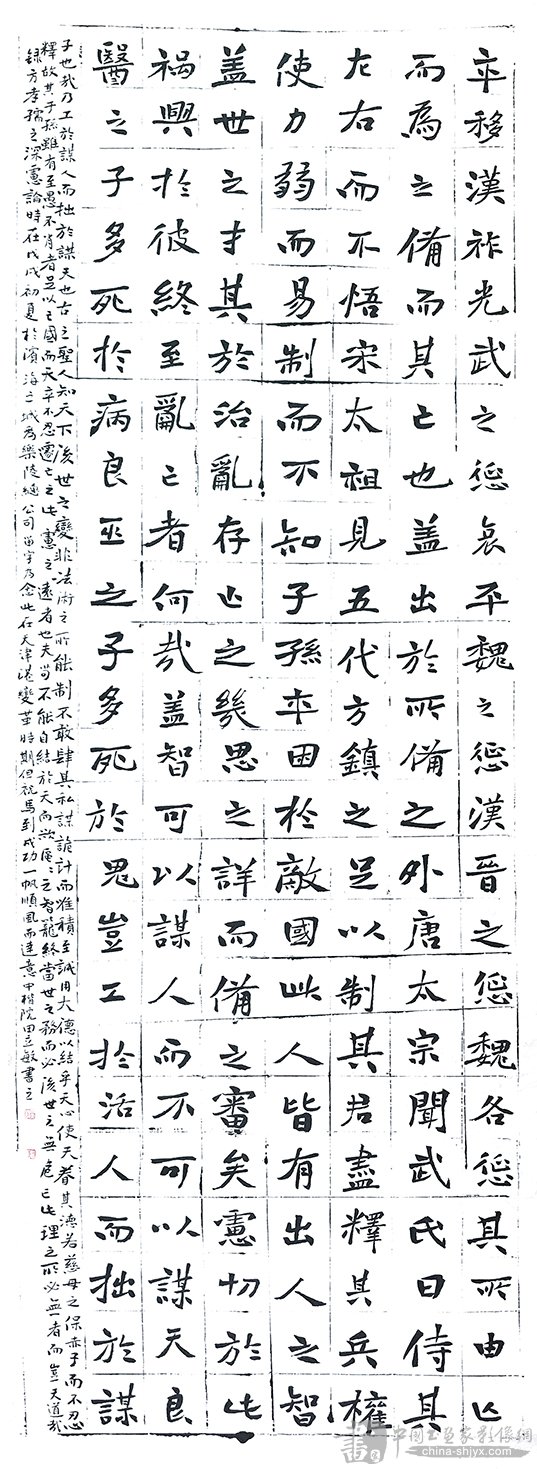 卒移漢祚光武之懲哀平魏之懲漢晉之懲魏各懲其所由亡
而為之備而其亡也蓋出於所備之外唐太宗聞武氏日侍其
左右而不悟宋太祖見五代方鎮之足以制其君盡釋其兵權
使力弱而易制而不知子孫卒困於敵國此人皆有出人之智
盖世之才其於治亂存亡之幾思之詳而備之審矣慮切於此
禍興於彼終至亂亡者何哉盖智可以謀人而不可以謀天良
醫之子多死於病良巫之子多死於鬼豈工於活人而拙於謀
子也哉乃工於謀人而拙於謀天也古之聖人知天下後世之變非法術之所能制不敢肆其私謀詭計而唯積至誠用大德以結乎天心使天眷其德若慈母之保赤子而不忍
釋故其子孫雖有至愚不肖者足以亡國而天卒不忍遽亡之此慮之遠者也夫苟不能自結於天而欲區區之智籠終當世之務而必後世之無危亡此理之所必無者而豈天道哉
錄方孝孺之深慮論時在戊戌初夏於濱海之城為樂陵總公司留字乃念此在天津港變革時期但祝馬到成功一帆順風而達意中楷院田立敏書之
中国书画家影像網
china-shjyx.com